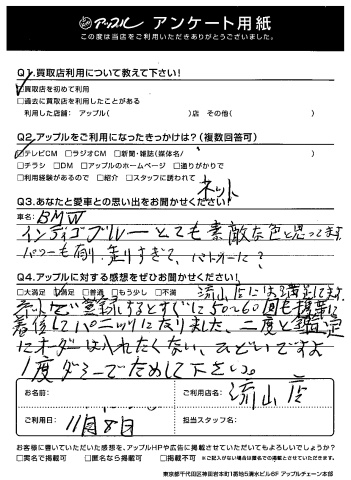 アップル アンケート用紙
この度は当店をご利用いただきありがとうございました。
Q1.買取店利用について教えて下さい!
□買取店を初めて利用
□過去に買取店を利用したことがある
利用した店舗: アップル( )店 その他( )
Q2.アップルをご利用になったきっかけは?(複数回答可)
□テレビCM □ラジオCM □新聞・雑誌(媒体名/ )
□チラシ □DM □アップルのホームページ □通りがかりで
□利用経験があるので □紹介 □スタッフに誘われて
ネット
Q3.あなたと愛車との思い出をお聞かせください!
車名: BMW
インディゴブルーとても素敵な色と思ってます
パワーも有り、走りすぎて、パトカーに?
Q4.アップルに対する感想をぜひお聞かせください!
□大満足 □満足 □普通 □もう少し □不満
流山店には満足してます。
ネットで登録するとすぐに50〜60回も携帯に
着信してパニックになりました、二度と
にオーダーは入れたくない、ひどいですよ
1度ダミーでためして下さい。
お名前:
ご利用店名: 流山店
ご利用日: 11月8日
担当スタッフ名:
お客様に書いていただいた感想を、アップルHPや広告に掲載させていただいてもよろしいでしょうか?
□実名で掲載可 □匿名なら掲載可 □掲載不可 ※ご記入がない場合は匿名での掲載とさせていただきます。
東京都千代田区神田岩本町1番地5清水ビル6F アップルチェーン本部